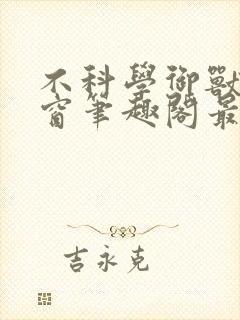 不科學御獸
窗筆趣閣最
吉永克